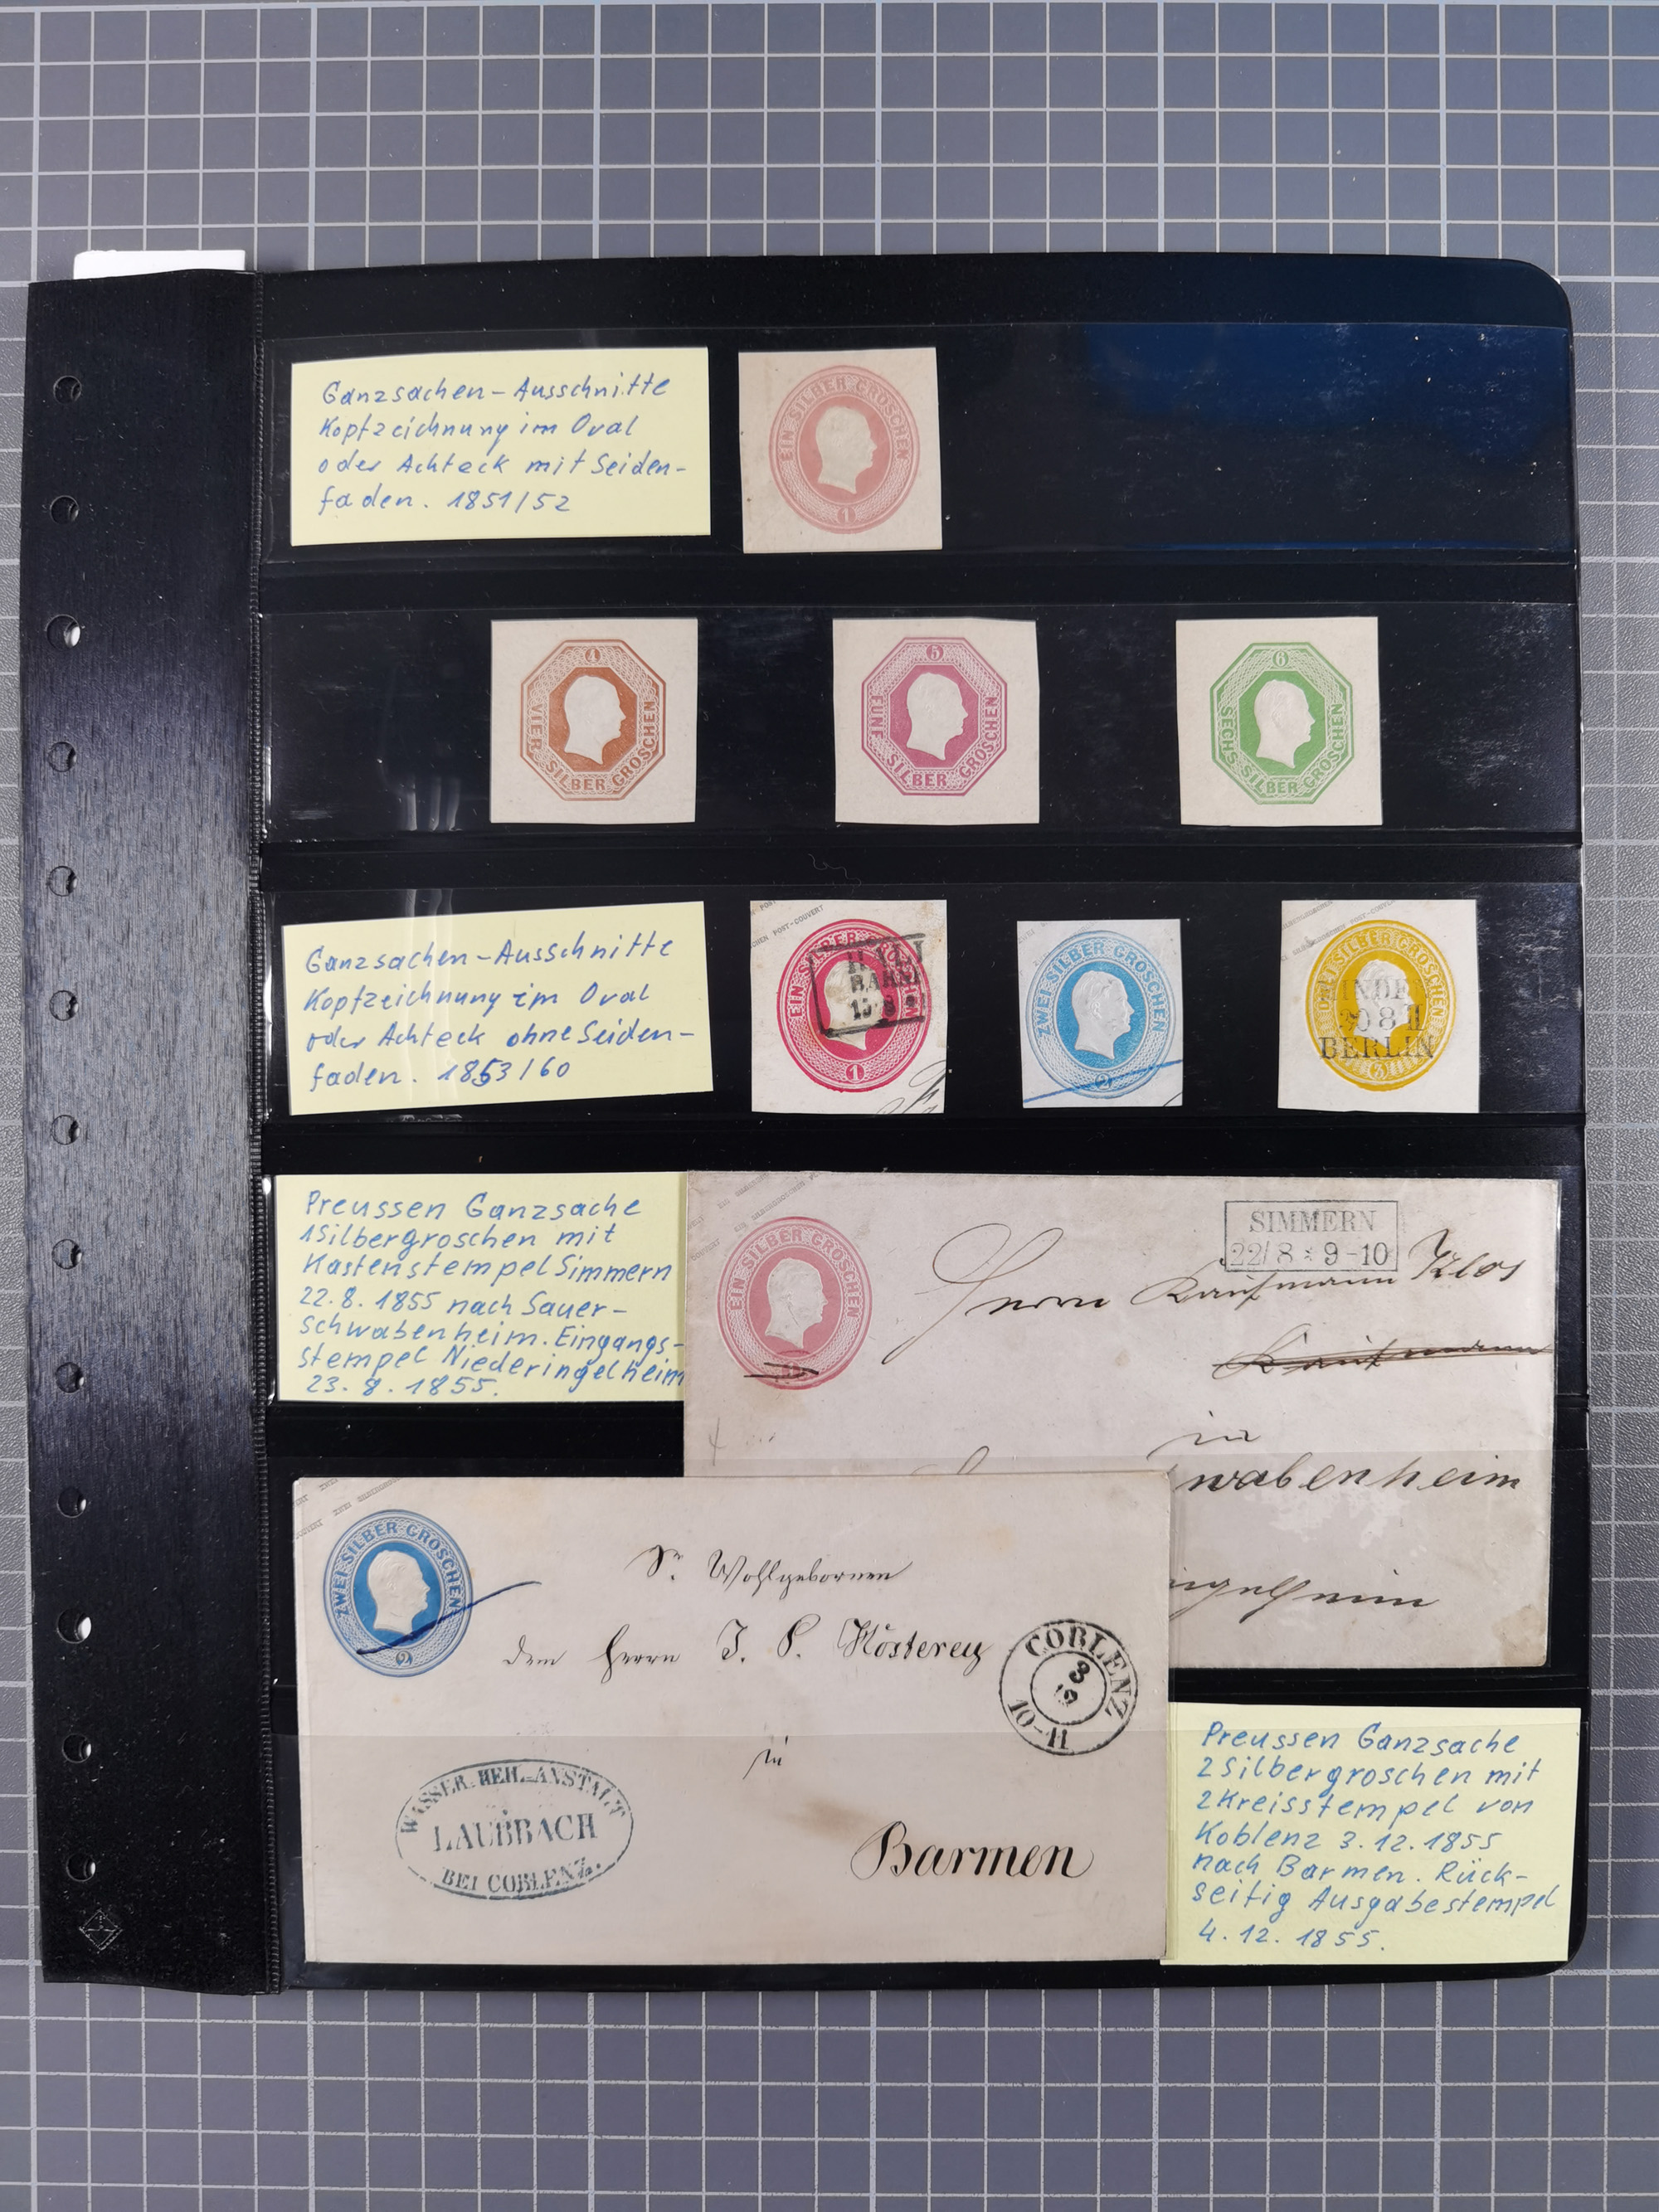 Ganzsachen-Ausschnitte
Kopfzeichnung im Oval
oder Achteck mit Seiden-
faden. 1851/52
EIN SILBER GROSCHEN
1
4
VIER SILBER GROSCHEN
5
FÜNF SILBER GROSCHEN
6
SECHS SILBER GROSCHEN
Ganzsachen-Ausschnitte
Kopfzeichnung im Oval
oder Achteck ohne Seiden-
faden. 1853/60
POST-COUVERT
EIN SILBER GROSCHEN
1
ZWEI SILBER GROSCHEN
2
DREI SILBER GROSCHEN
3
BERLIN
Preussen Ganzsache
1Silbergroschen mit
Kastenstempel Simmern
22.8.1855 nach Sauer-
schwabenheim. Eingangs-
stempel Niederingelheim
23.8.1855.
EIN SILBER GROSCHEN
SIMMERN
22/8 * 9-10
Herrn Kaufmann Klos
Kaufmann
in
wabenheim
ingelheim
ZWEI SILBER GROSCHEN
2
Sr. Wohlgebornen
dem Herrn J. P. Kösterey
COBLENZ
3
12
10-11
in
WASSER-HEIL-ANSTALT
LAUBBACH
BEI COBLENZ.
Barmen
Preussen Ganzsache
2Silbergroschen mit
2Kreisstempel von
Koblenz 3.12.1855
nach Barmen. Rück-
seitig Ausgabestempel
4.12.1855.